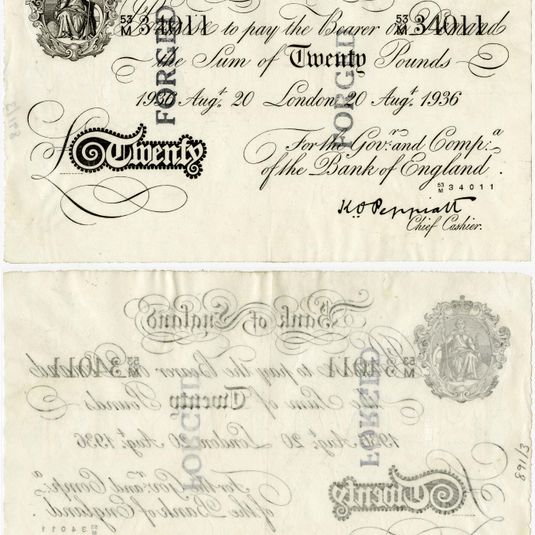 53 M 34011 53 M 34011
to pay the Bearer on Demand
the Sum of Twenty Pounds
1936 Augt. 20 London 20 Augt. 1936
FORGED FORGED
£Twenty
For the Govr. and Compa.
of the Bank of England.
53 M 34011
K O Peppiatt
Chief Cashier.
Bank of England
53 M 34011 53 M 34011
to pay the Bearer on Demand
the Sum of Twenty Pounds
1936 Augt. 20 London 20 Augt. 1936
FORGED FORGED
£Twenty
For the Govr. and Compa.
of the Bank of England.
34011